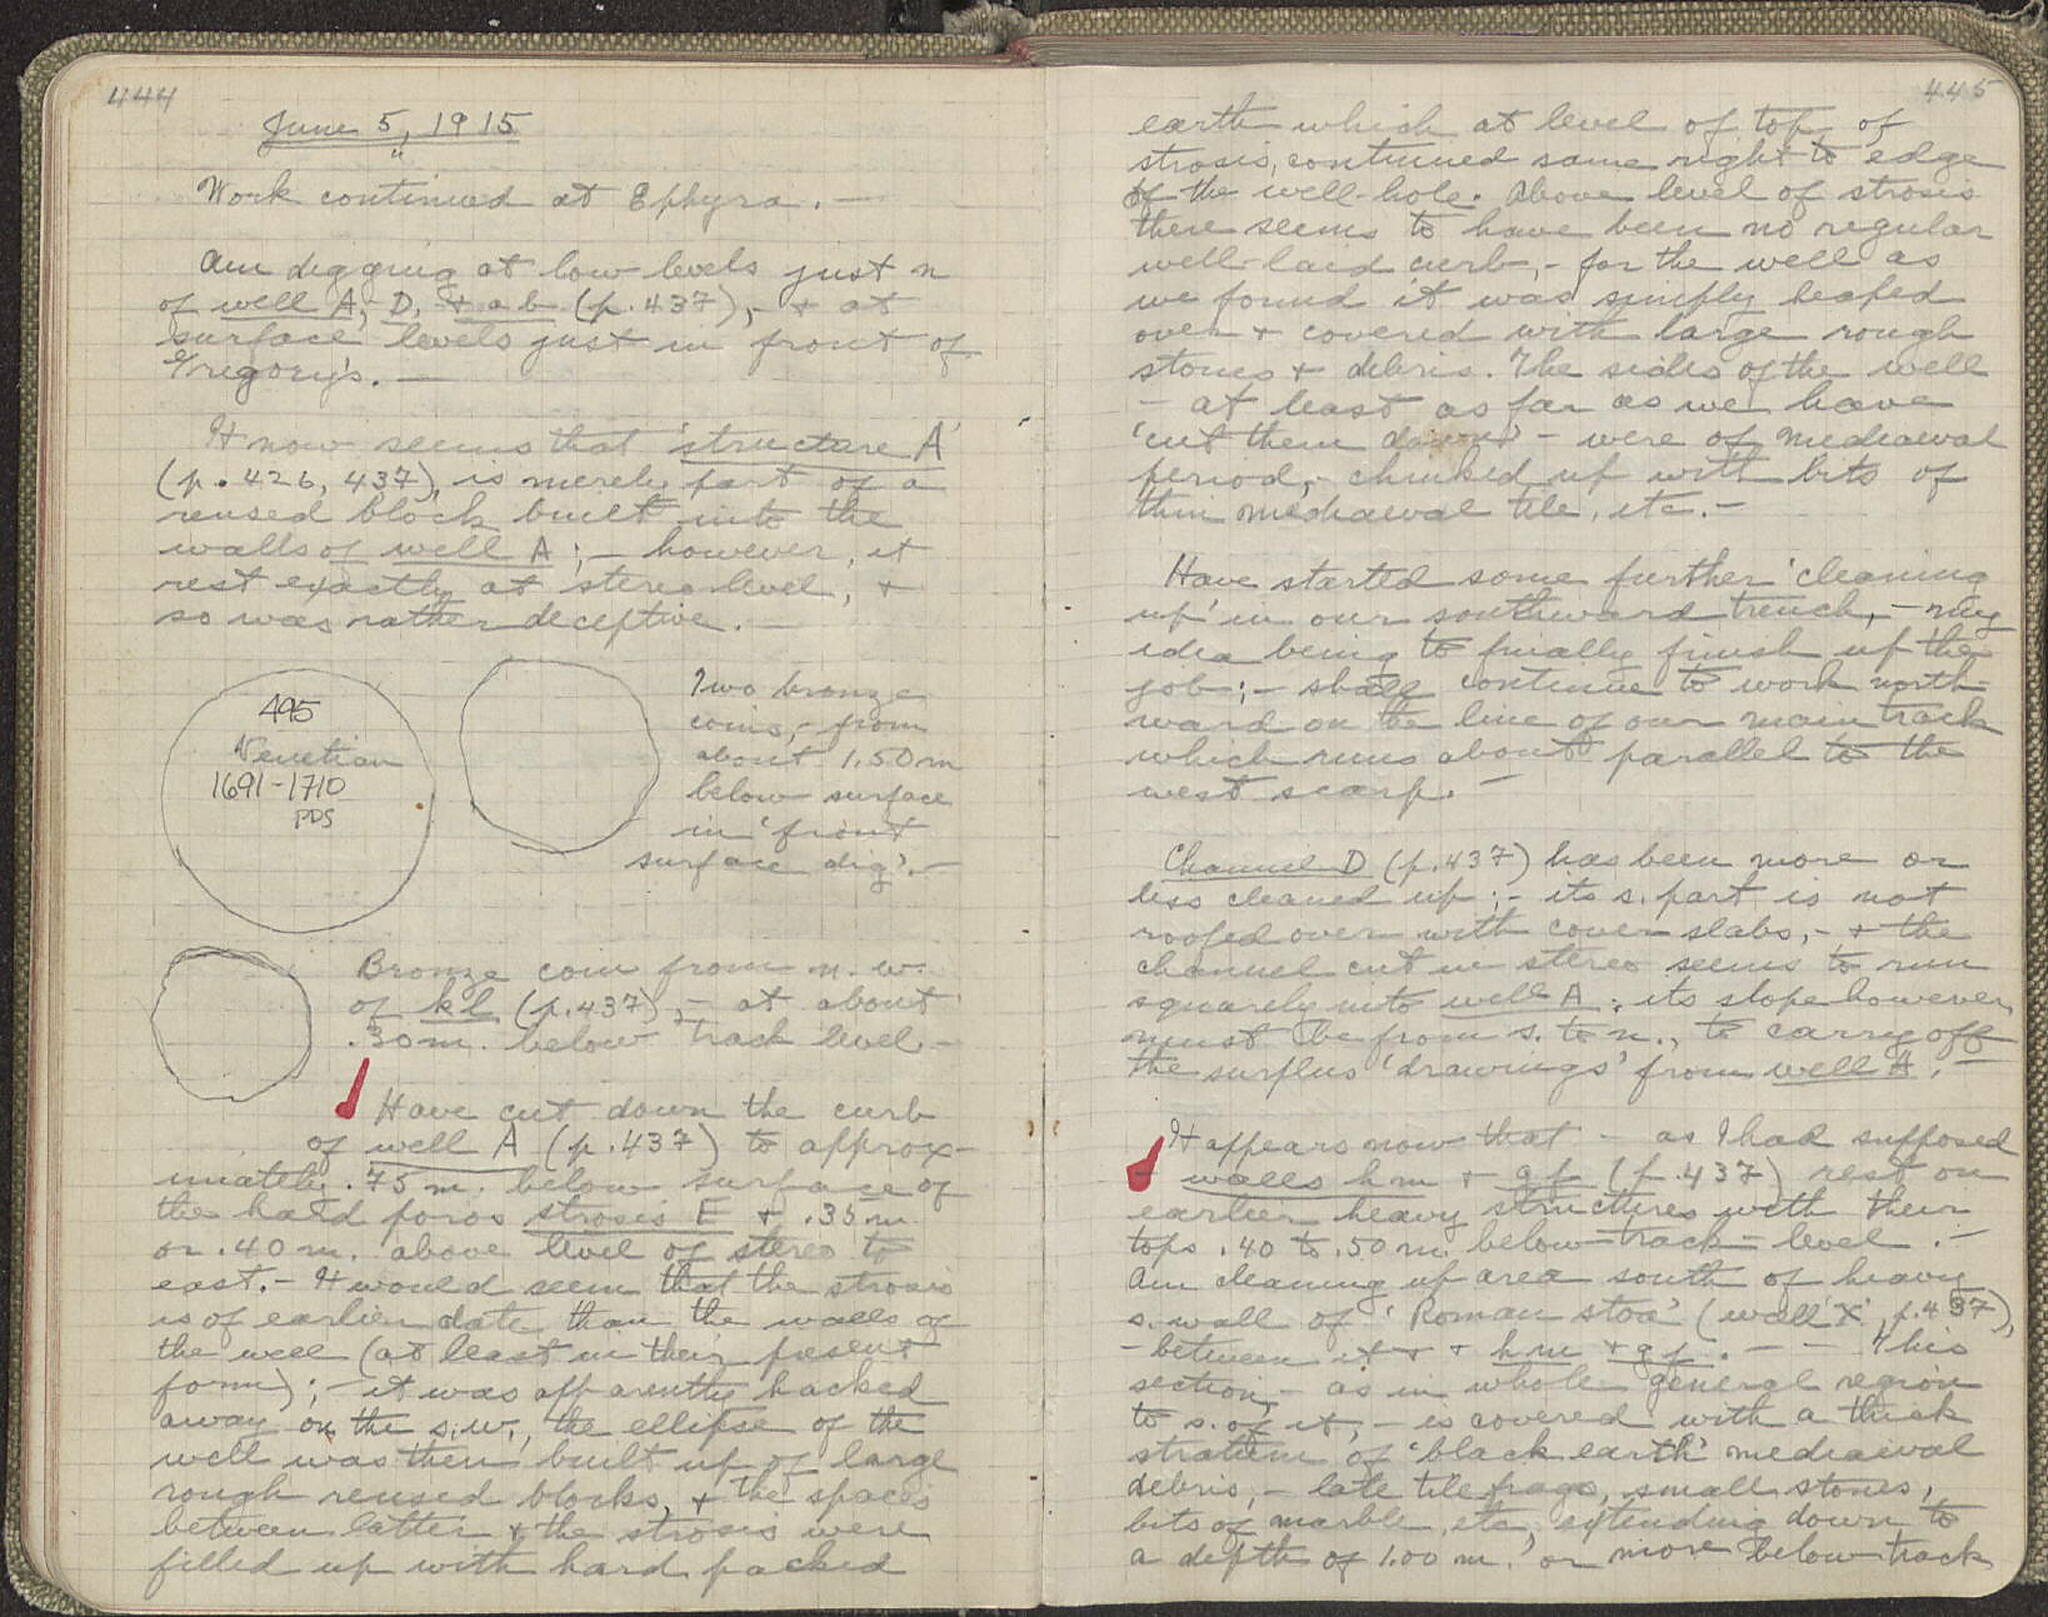 444
June 5, 1915
"
Work continued at Ephyra. —
Am digging at low levels just n
of well A, D, + ab (p. 437), - + at
surface levels just in front of
Gregory's. —
It now seems that 'structure A'
(p. 426, 437), is merely part of a
reused block built into the
walls of well A; - however, it
rest exactly at stereo level, +
so was rather deceptive. —
495
Venetian
1691-1710
PDS
Two bronze
coins, - from
about 1.50 m
below surface
in 'front
surface dig'. —
Bronze coin from n. w.
of kl (p. 437), - at about
.30 m. below track level -
Have cut down the curb
of well A (p. 437) to approx-
imately .75 m. below surface of
the hard poros strosis E + .35 m
or .40 m. above level of stereo to
east. - It would seem that the strosis
is of earlier date than the walls of
the well (at least in their present
form); - it was apparently hacked
away on the s.w., the ellipse of the
well was then built up of large
rough reused blocks, + the spaces
between latter + the strosis were
filled up with hard packed
445
earth which at level of top of
strosis, continued same right to edge
of the well-hole. Above level of strosis
there seems to have been no regular
well-laid curb, - for the well as
we found it was simply heaped
over + covered with large rough
stones + debris. The sides of the well
- at least as far as we have
'cut them down' - were of mediaeval
period, - chinked up with bits of
thin mediaeval tile, etc. -
Have started some further 'cleaning
up' in our southward trench, - my
idea being to finally finish up the
job; - shall continue to work north-
ward on the line of our main track
which runs about parallel to the
west scarp. —
Channel D (p. 437) has been more or
less cleaned up; - its s. part is not
roofed over with cover slabs, - + the
channel cut in stereo seems to run
squarely into well A; its slope however
must be from s. to n., to carry off
the surplus 'drawings' from well A. —
It appears now that - as I had supposed
- walls hm + gf (p. 437) rest on
earlier heavy structures with their
tops .40 to .50 m. below track-level. -
Am cleaning up area south of heavy
s. wall of 'Roman stoa' (wall 'X', p. 437),
- between it + + hm + gf. - - This
section, - as in whole general region
to s. of it, - is covered with a thick
stratum of 'black earth' mediaeval
debris, - late tile frags, small stones,
bits of marble, etc, extending down to
a depth of 1.00 m. or more below track